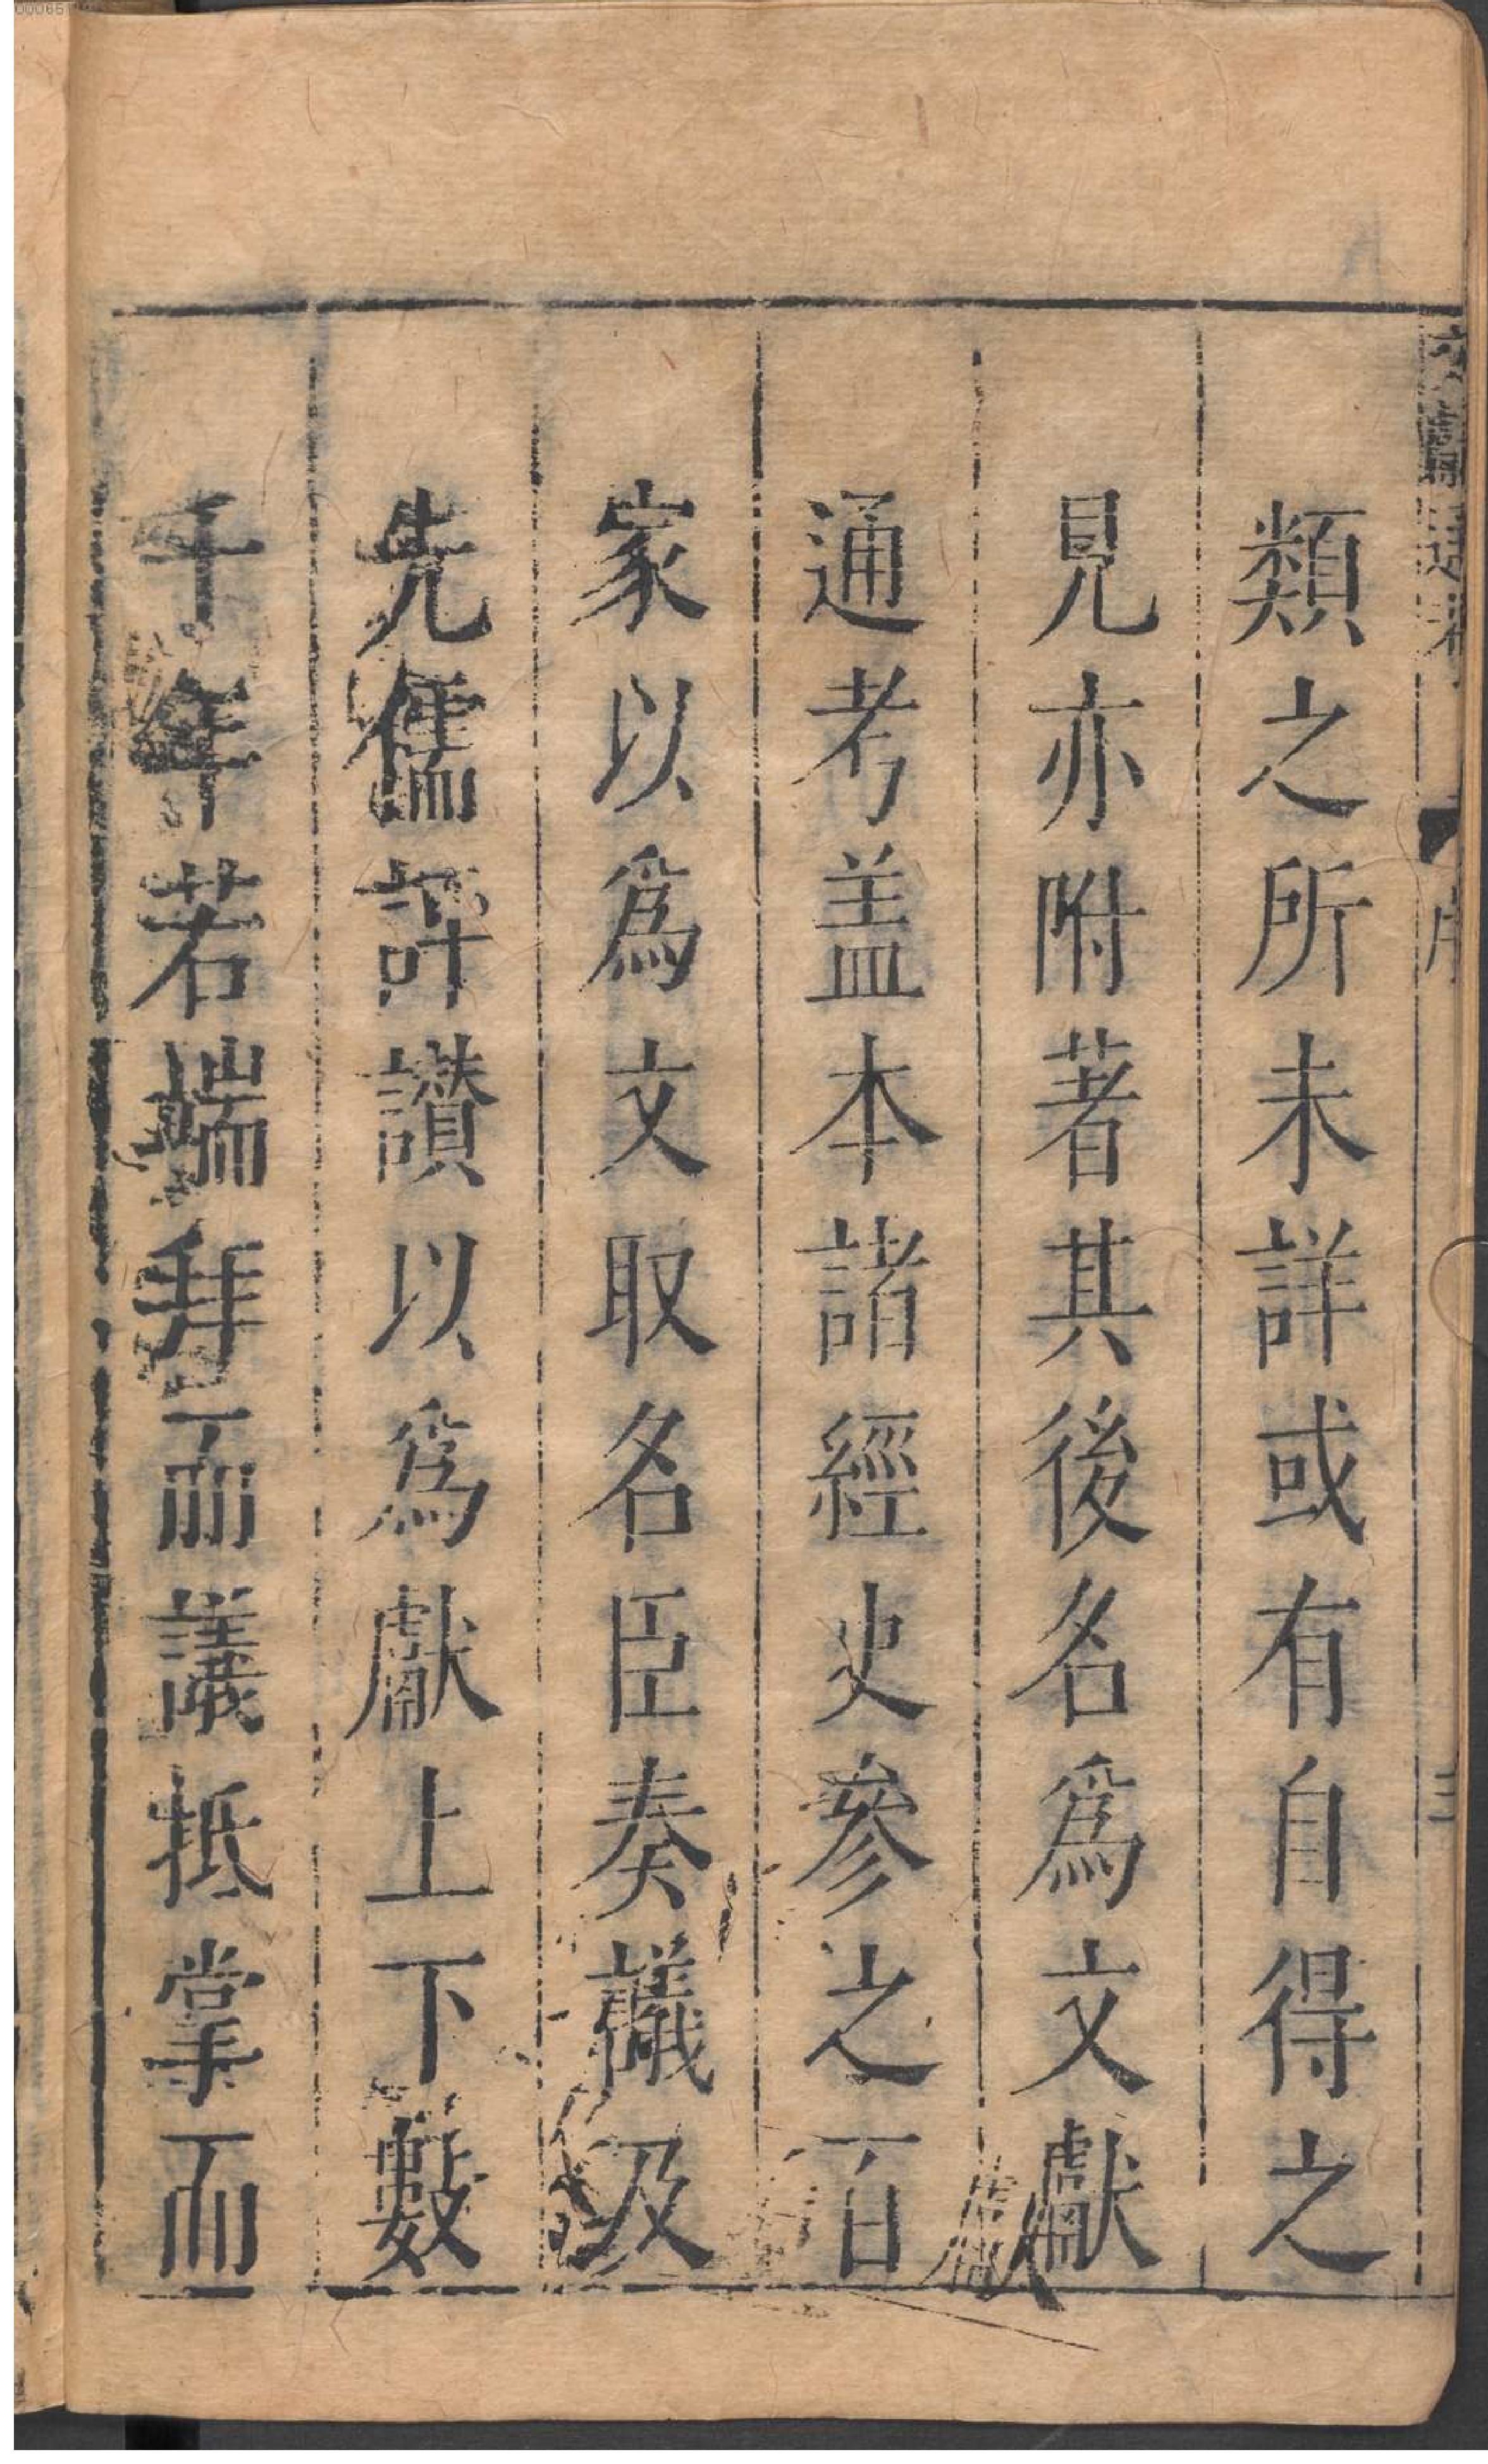 文獻通考 序 三
類之所未詳或有自得之
見亦附著其後名爲文獻
通考盖本諸經史參之百
家以爲文取名臣奏議及
先儒評讃以爲獻上下數
千年若端拜而議抵掌而